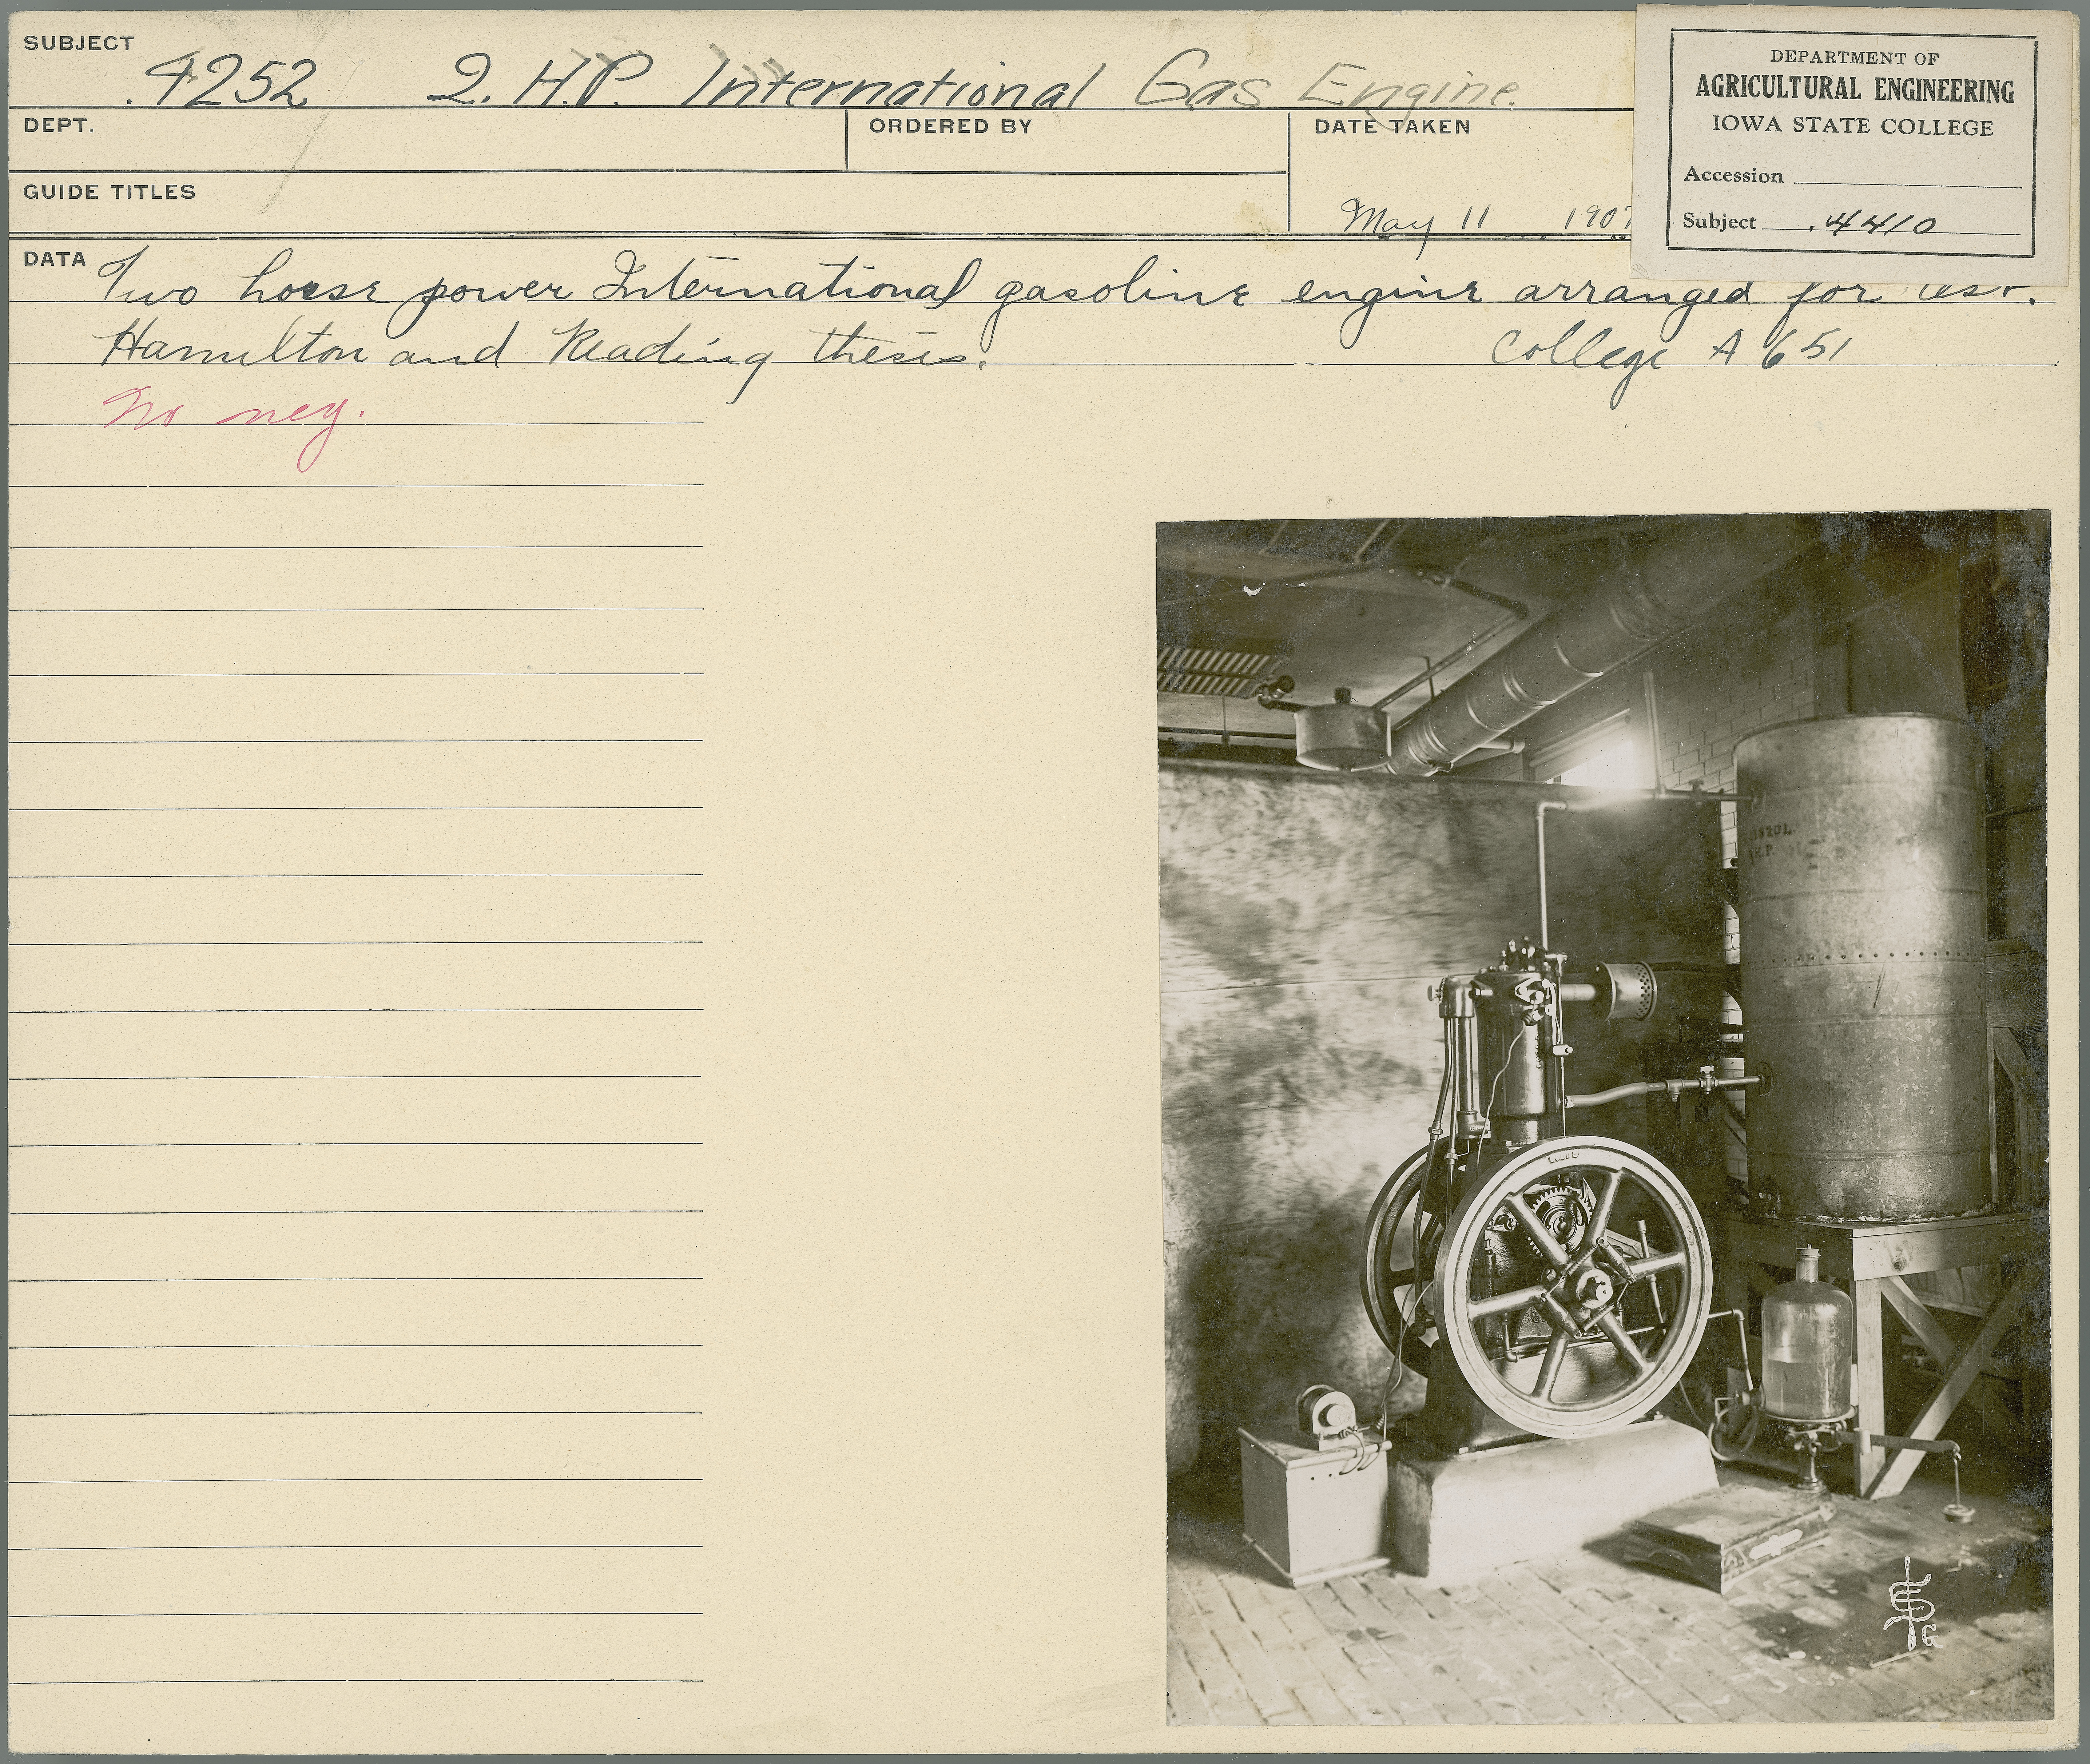 SUBJECT
.4252 2. H.P. International Gas Engine.
DEPT.
ORDERED BY
DATE TAKEN
May 11 1907
GUIDE TITLES
DEPARTMENT OF
AGRICULTURAL ENGINEERING
IOWA STATE COLLEGE
Accession
Subject .4410
DATA Two horse power International gasoline engine arranged for test.
Hamilton and Reading thesis. College A 651
No neg.
H.P.